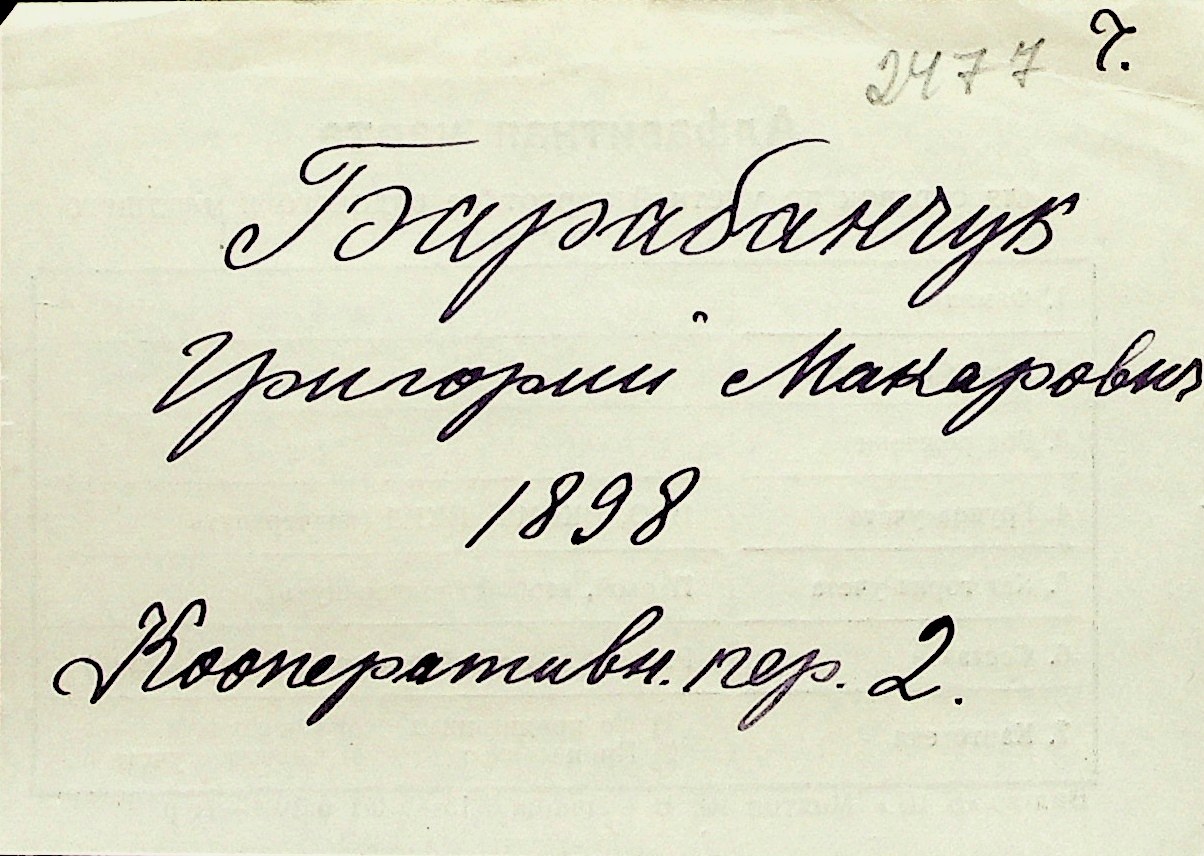 2477 Ч.
Барабанчук
Григорий Макарович
1898
Кооперативн. пер. 2.